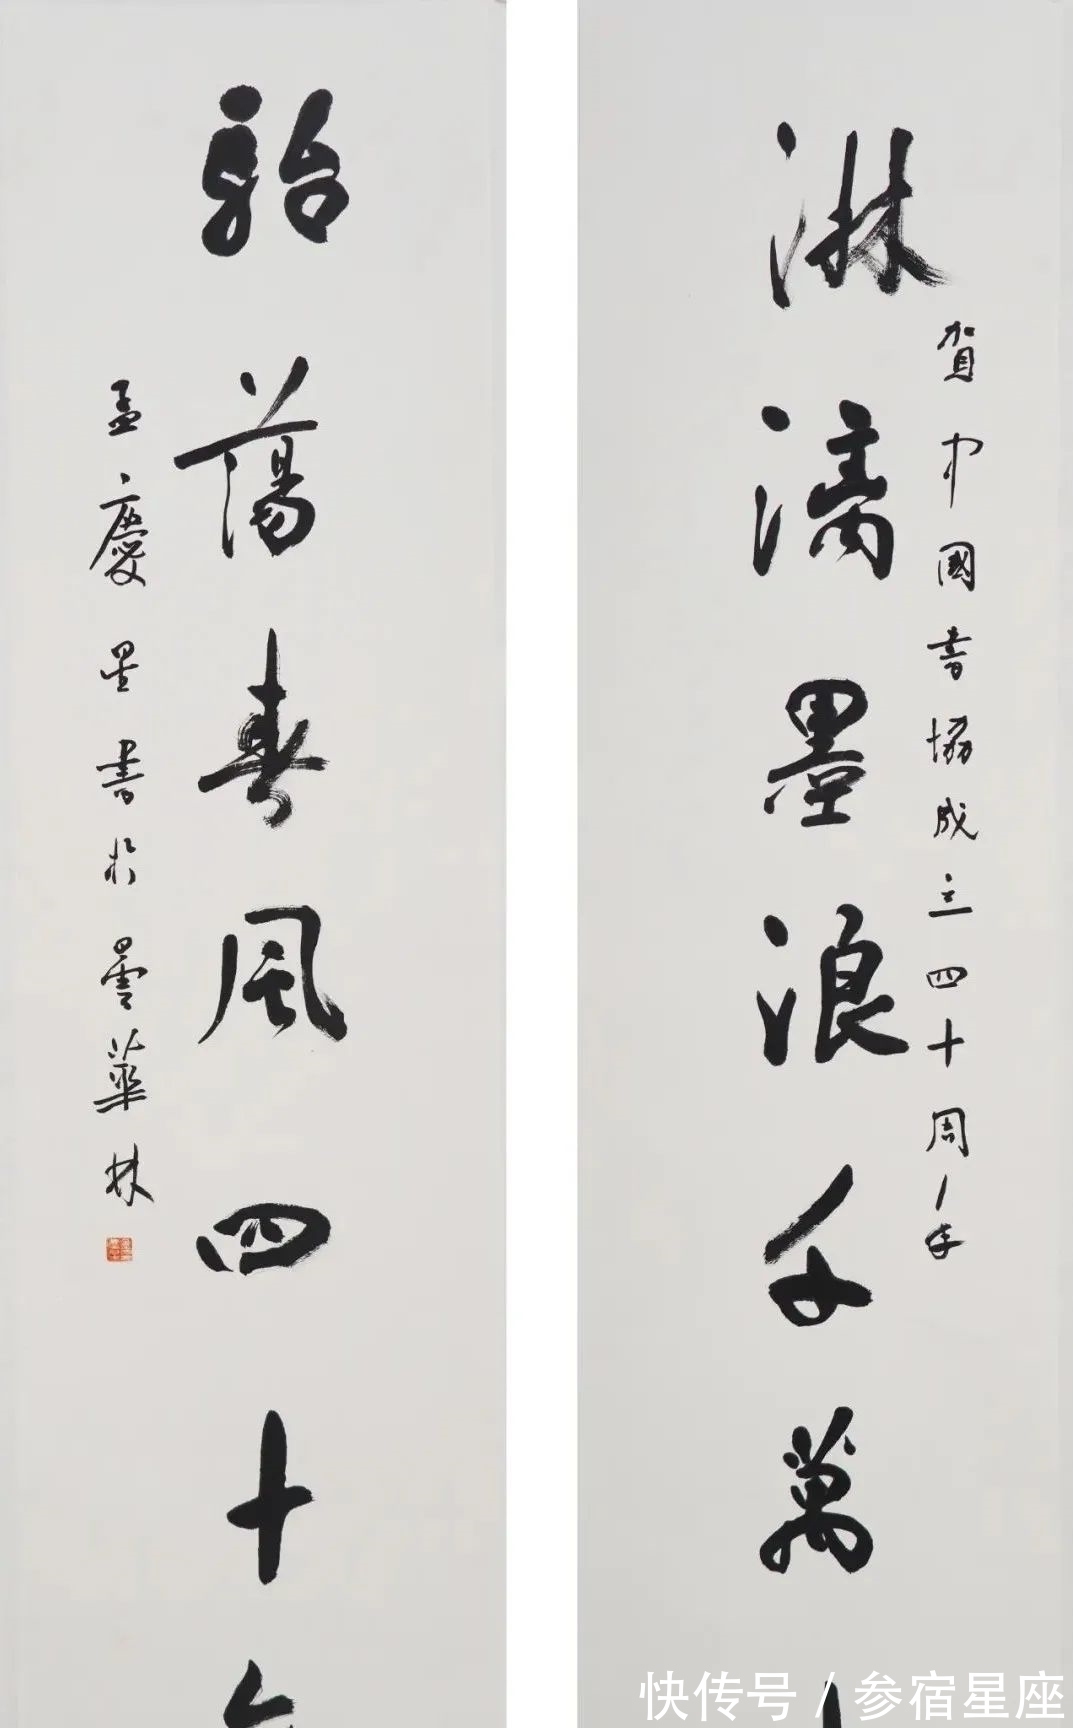 淋漓墨浪千萬
賀中國書協成立四十周年
駘蕩春風四十
孟慶星書於曇華林
快传号 / 参宿星座